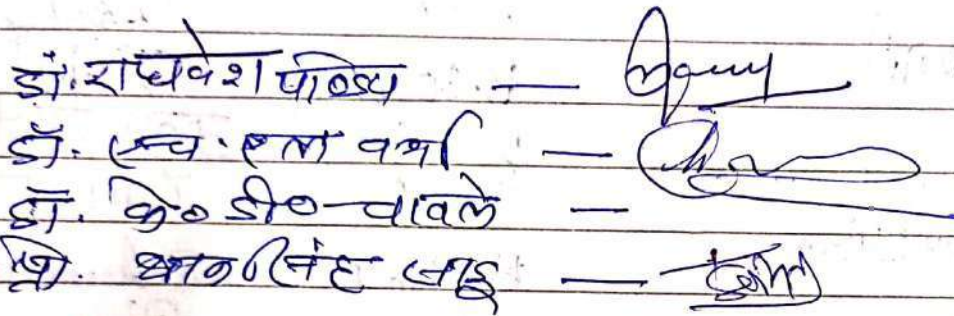 डॉ. राघवेश पाण्डेय —
डॉ. एच. एल वर्मा —
डॉ. के० डी० चावले —
श्री. थानसिंह साहू —